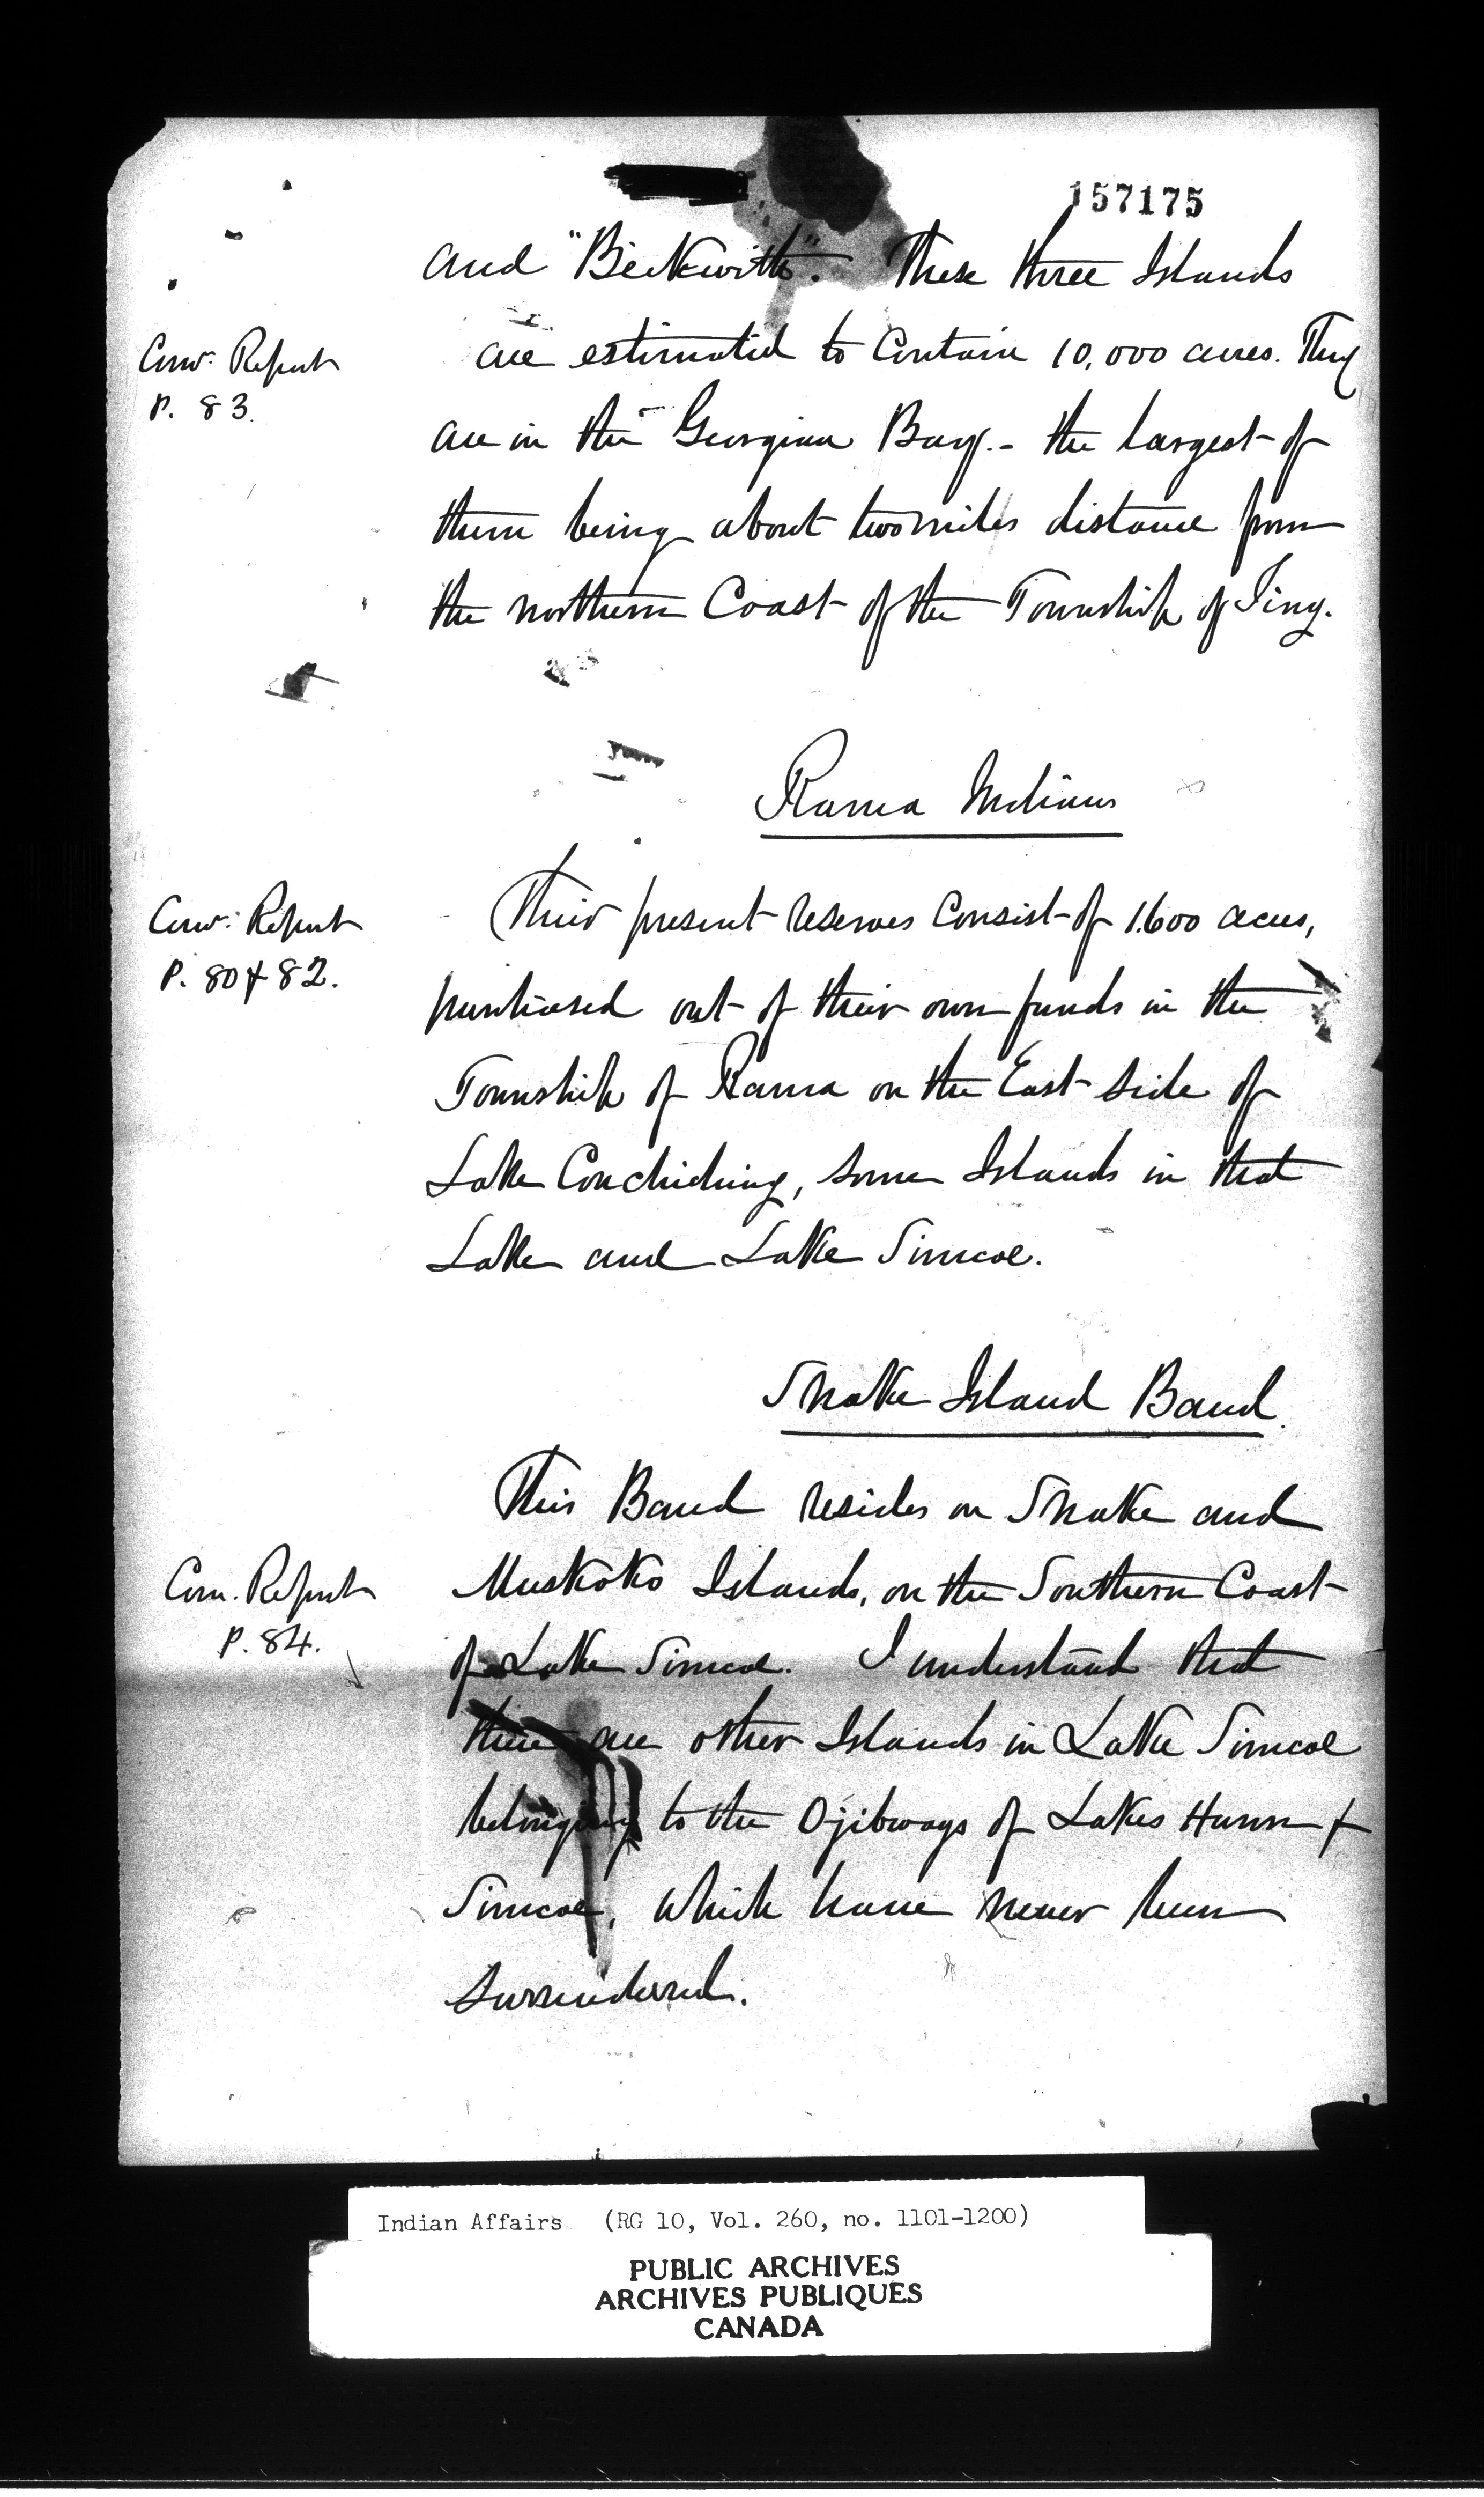 157175
and "Beckwith". These three Islands
Comrs. Report
P. 83.
are estimated to Contain 10,000 acres. They
are in the Georgian Bay. - the largest of
them being about two miles distance from
the northern Coast of the Township of Tiny.
Rama Indians
Comrs: Report
P. 80 & 82.
Their present reserves Consist of 1600 acres,
purchased out of their own funds in the
Township of Rama on the East side of
Lake Couchiching, some Islands in that
Lake and Lake Simcoe.
Snake Island Band.
This Band resides on Snake and
Com. Report
P. 84.
Muskoko Islands, on the Southern Coast
of Lake Simcoe. I understand that
there are other Islands in Lake Simcoe
belonging to the Ojibways of Lakes Huron &
Simcoe, which have never been
surrendered.
Indian Affairs (RG 10, Vol. 260, no. 1101-1200)
PUBLIC ARCHIVES
ARCHIVES PUBLIQUES
CANADA